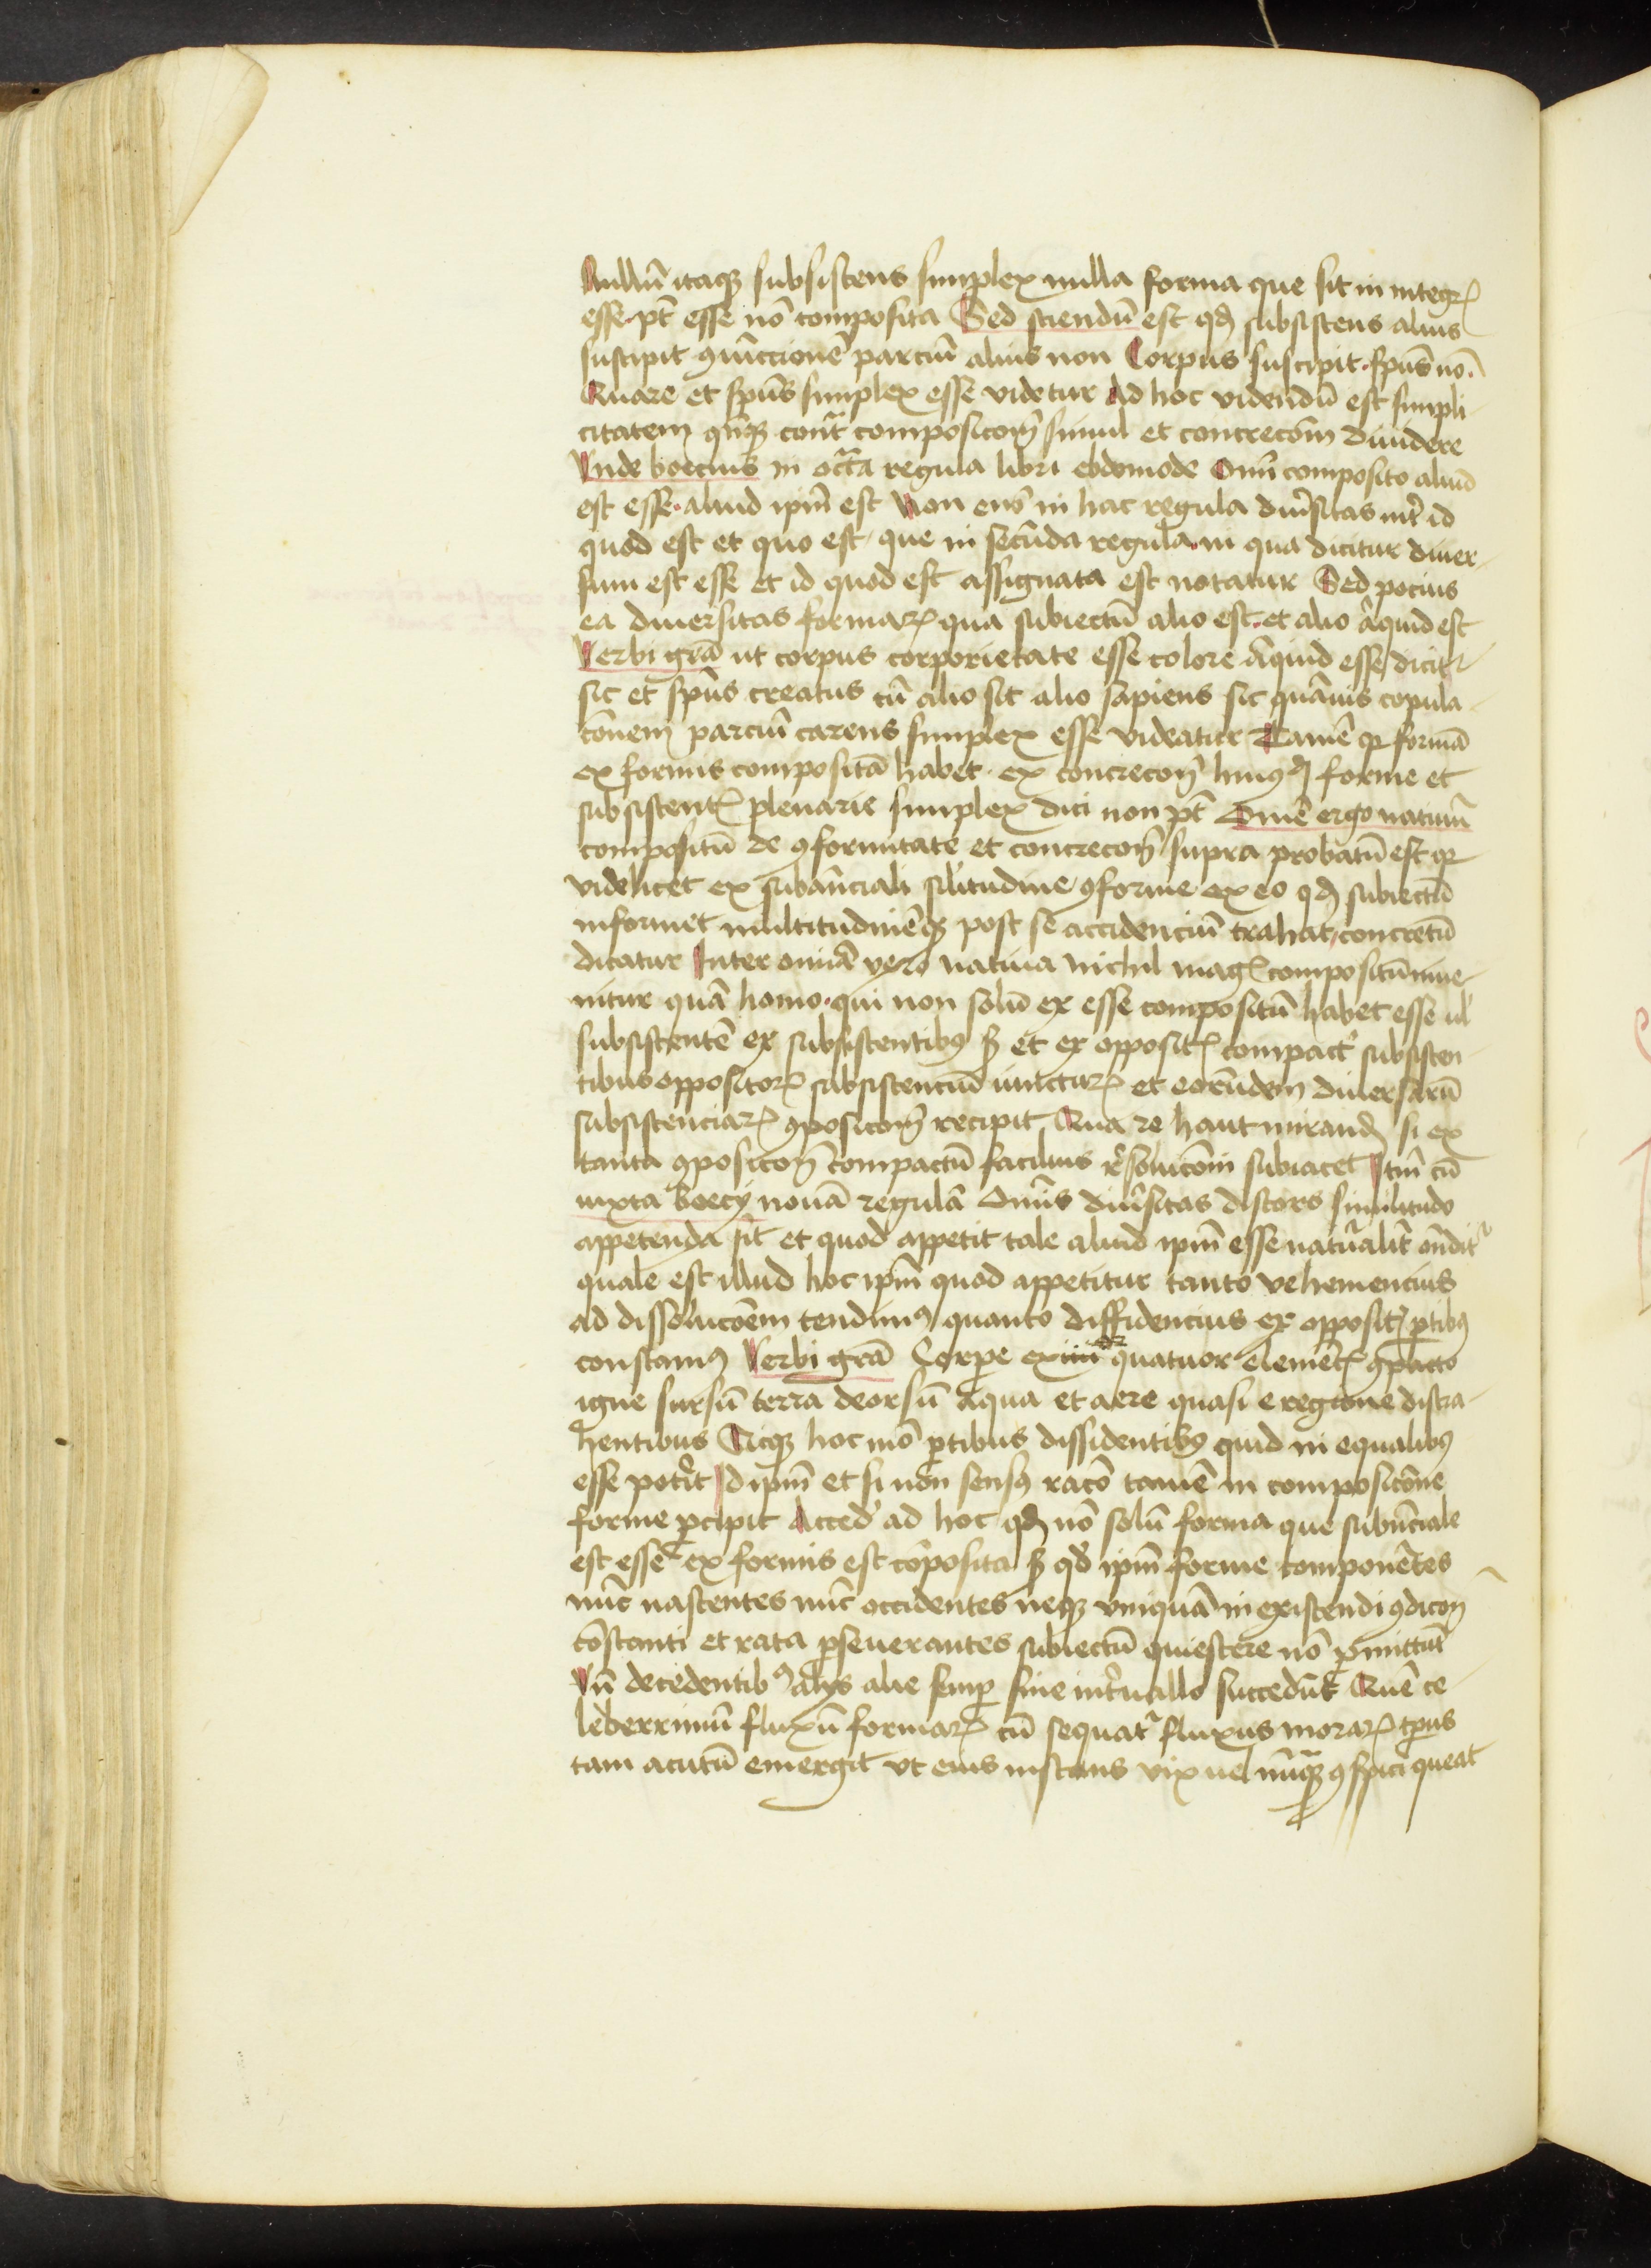 Nullū itaqꝫ subsistens simplex nulla forma que sit in integrꝭ
esse pt̄ esse nō composita Sed sciendū est qd̄ subsistens aliud
suscipit ꝯiūccionē parciū aliud non Corpus suscipit spūs nō
Quare et spūs simplex esse videtur Ad hoc videndū est simpli
citatem cont̄ composicōn̄ simul et concrecōm diuidere
Vnde boecius in octa regula libri ebdomode Omī composito aliud
est esse aliud ipm̄ est Non eni in hac regula diu̾sitas int̄ id
quod est et quo est que in secūda regula in qua dicitur diuer
sum est esse et id quod est assignata est notatur Sed pocius
ea diuersitas formaꝝ qua subiectū alio est et alio aꝉquid est
Verbi grā ut corpus corporietate esse colore aꝉquid esse dicit᷑
sic et spūs creatus cū alio sit alio sapiens sic quāuis copula
cōnem parciū carens simplex esse videatur Tamē qꝛ formā
ex formis compositā habet ex concrecōn̄ huiꝰ forme et
subsistentꝭ plenarie simplex dici non pt̄ Omē ergo natiuū
compositū de ꝯformitate et concrecōn̄ supra probatū est qꝛ
videlicet ex subanciali sil̾itudine ꝯforme ex eo qd̄ subiectū
informet multitudinēqꝫ post se accidenciū trahat concretū
dicatur Inter omīa vero natiua nichil magꝭ compositū inue
nitur quā homo qui non solū ex esse compositū habet esse ul̾
subsistentē ex subsistentibꝰ sꝫ et ex oppositꝭ compact̾ subsisten
tibus oppositoꝝ subsistenciū iūcturꝭ et eorūdem diuersarū
subsistenciaꝝ ꝯposicōn̄ recipit Qua re haut mirand̄ si ex
tanta ꝯposicōn̄ compactū facilius resolucōni subiacet Itm̄ cū
iuxta boecij nonā regulā Omīs diu̾sitas discors similitudo
appetenda sit et quod appetit tale aliud ipm̄ esse nat̾alit̄ on̄dit᷑
quale est illud hoc ipm̄ quod appetitur tanto vehemencius
ad dissolucōem tendimꝰ quanto diffidencius ex oppositꝭ ꝑtibꝰ
constamꝰ Verbi grā Corpe ex quatuor elemētꝭ ꝯpacto
igne sursū terra deorsū aqua et aere quasi e regione distra
hentibus Sicqꝫ hoc mō ꝑtibus dissidentibꝰ quid in equalibꝰ
esse pot̾it Id ipm̄ et si non sensꝰ racō tamē in composicōne
forme ꝑcipit Acced̾ ad hoc qd̄ nō solū forma que subūciale
est esse ex formis est cōposita sꝫ qd̄ ipm̄ forme componētes
nūc nascentes nūc occidentes neqꝫ vniquā in existendi ꝯdicōn̄
cōstanti et rata ꝑseuerantes subiectū quiescere nō ꝑmittūt
Vn̄ decedentibꝰ alijs alie semꝑ sine int̾uallo succedūt Quē ce
leberrimū fluxū formaꝝ cū sequat᷑ fluxus moraꝝ tꝑus
tam acutū emergit vt eius instans vix uel nūqꝫ ꝯspici queat